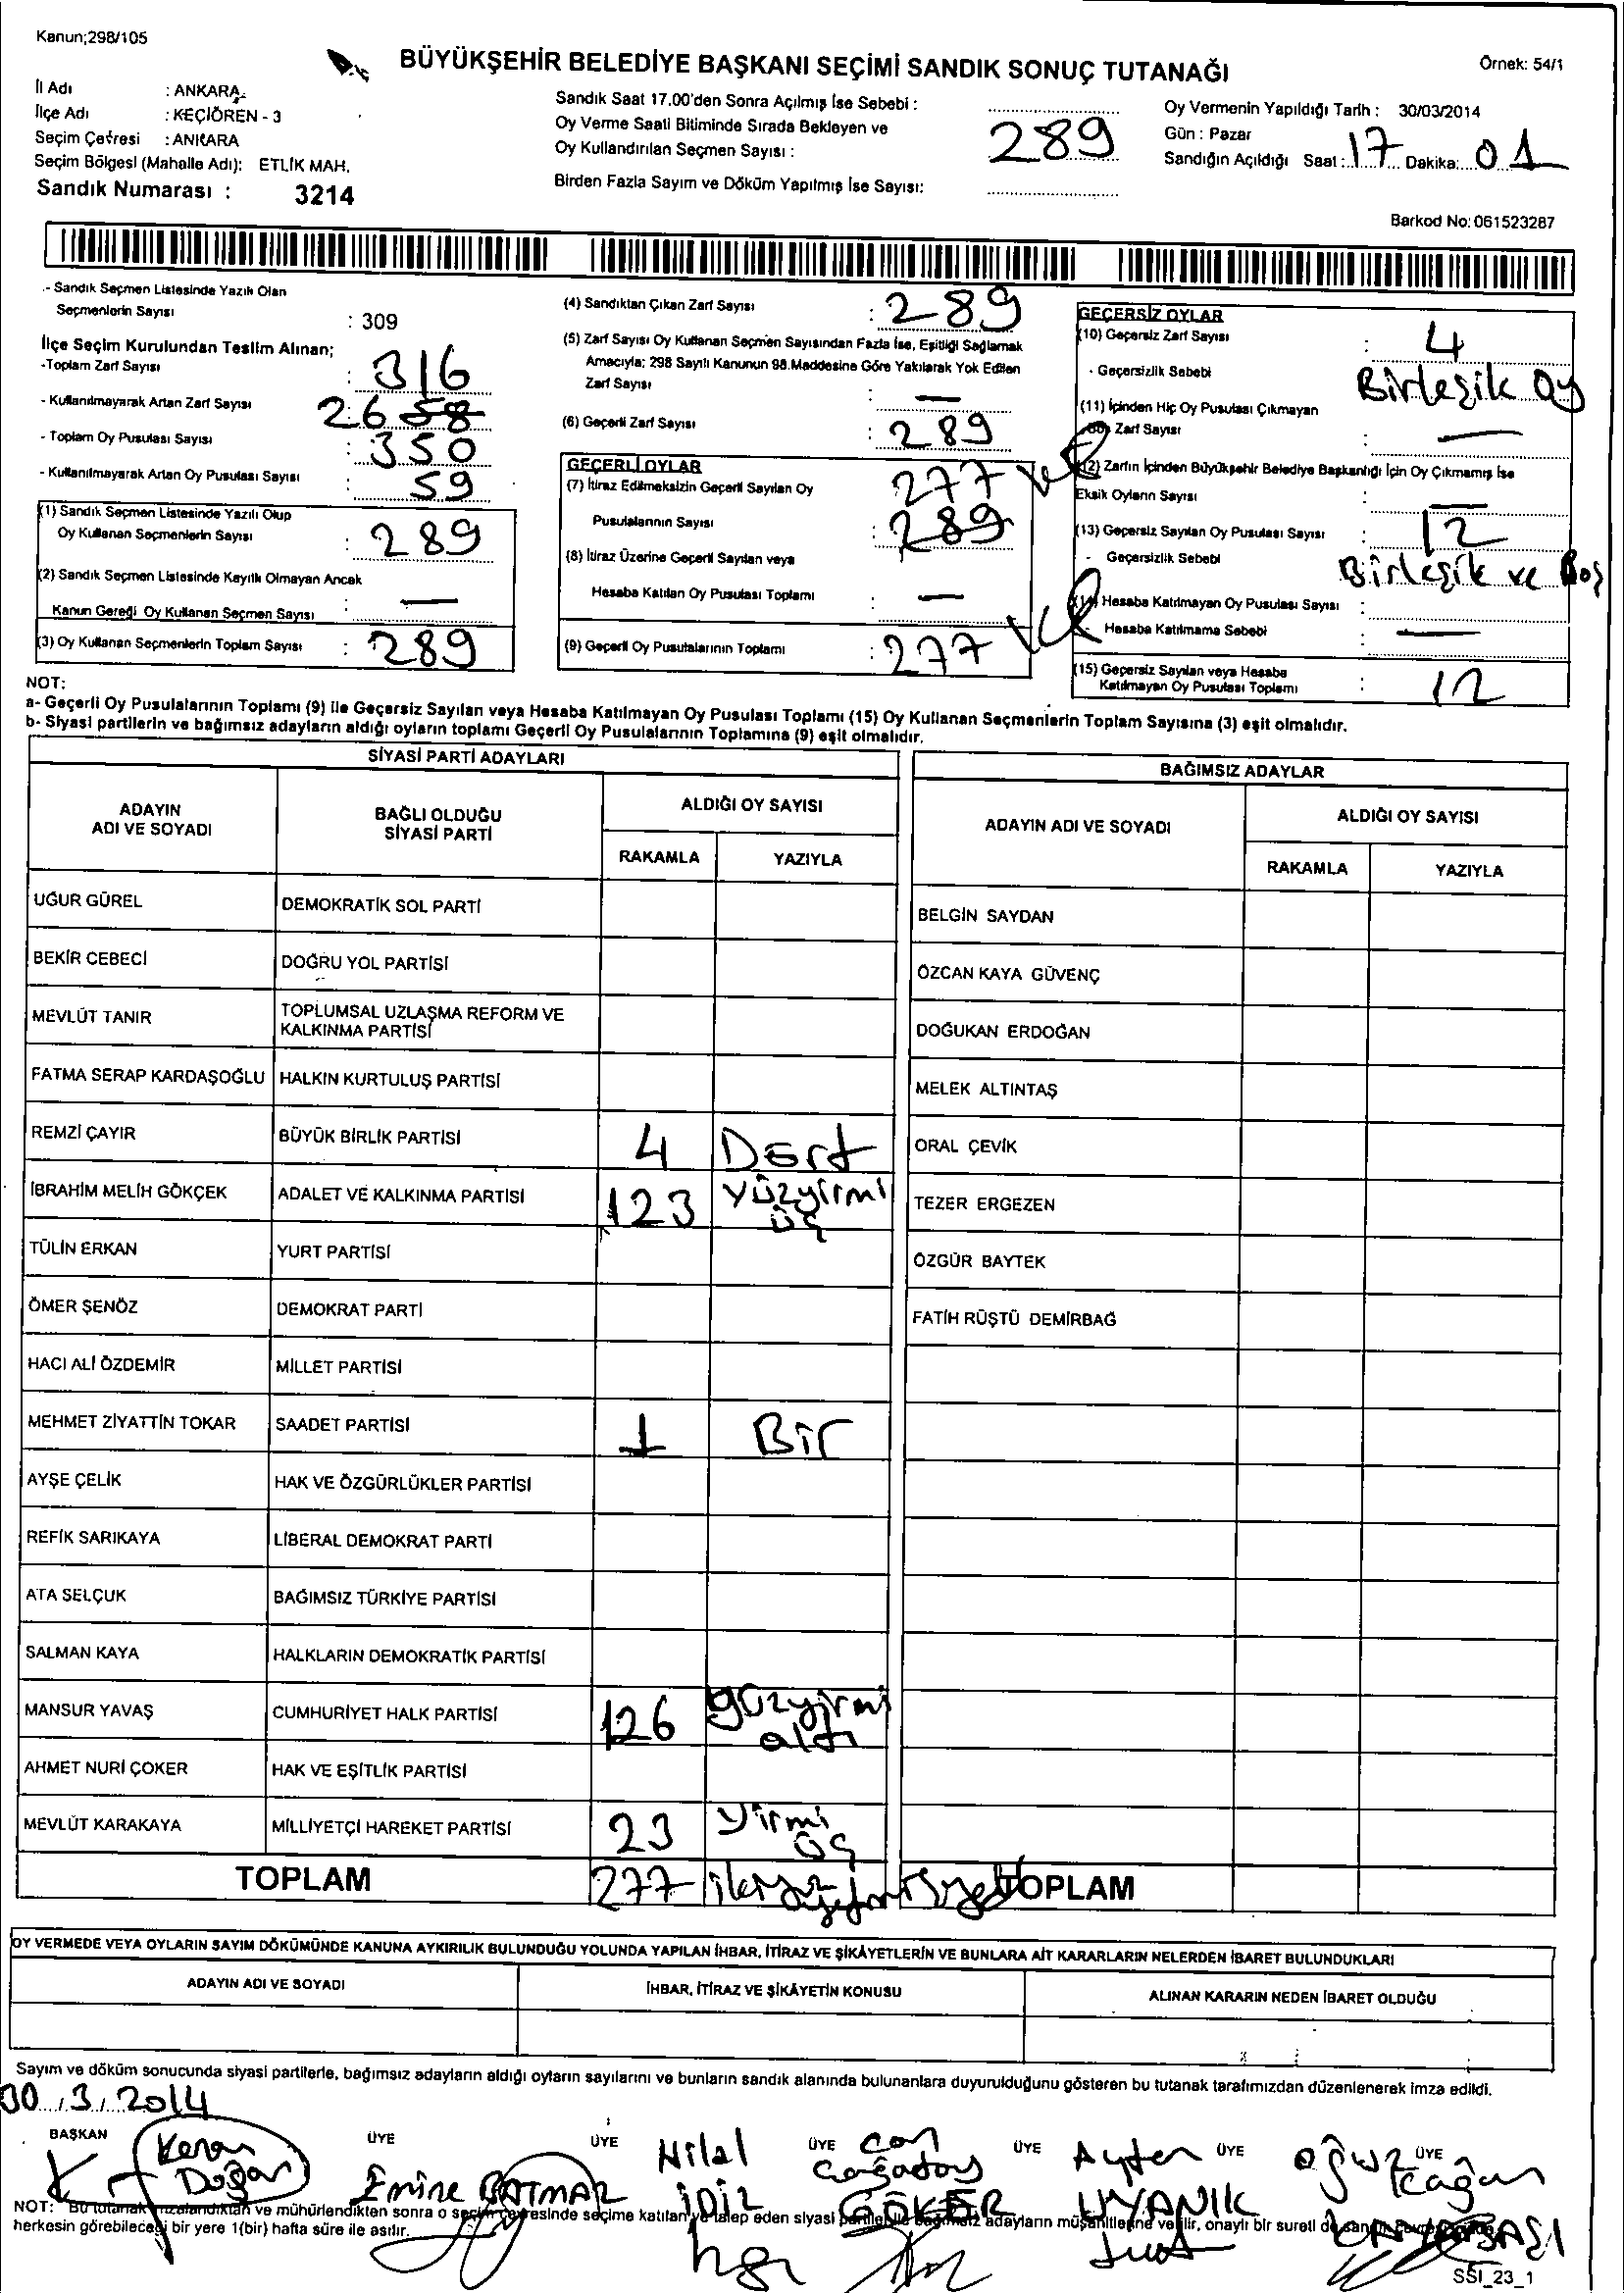 Kanun;298/105
BÜYÜKŞEHİR BELEDİYE BAŞKANI SEÇİMİ SANDIK SONUÇ TUTANAĞI
Örnek: 54/1
İl Adı : ANKARA
İlçe Adı : KEÇİÖREN - 3
Seçim Çevresi : ANKARA
Seçim Bölgesi (Mahalle Adı): ETLİK MAH.
Sandık Numarası : 3214
Sandık Saat 17.00'den Sonra Açılmış İse Sebebi :
Oy Verme Saati Bitiminde Sırada Bekleyen ve
Oy Kullandırılan Seçmen Sayısı : 289
Birden Fazla Sayım ve Döküm Yapılmış İse Sayısı:
Oy Vermenin Yapıldığı Tarih : 30/03/2014
Gün : Pazar
Sandığın Açıldığı Saat : 17 Dakika: 01
Barkod No: 061523287
- Sandık Seçmen Listesinde Yazılı Olan
Seçmenlerin Sayısı : 309
İlçe Seçim Kurulundan Teslim Alınan;
-Toplam Zarf Sayısı : 316
- Kullanılmayarak Artan Zarf Sayısı : 26 58
- Toplam Oy Pusulası Sayısı : 350
- Kullanılmayarak Artan Oy Pusulası Sayısı : 59
(1) Sandık Seçmen Listesinde Yazılı Olup
Oy Kullanan Seçmenlerin Sayısı : 289
(2) Sandık Seçmen Listesinde Kayıtlı Olmayan Ancak
Kanun Gereği Oy Kullanan Seçmen Sayısı : —
(3) Oy Kullanan Seçmenlerin Toplam Sayısı : 289
(4) Sandıktan Çıkan Zarf Sayısı : 289
(5) Zarf Sayısı Oy Kullanan Seçmen Sayısından Fazla İse, Eşitliği Sağlamak
Amacıyla; 298 Sayılı Kanunun 98.Maddesine Göre Yakılarak Yok Edilen
Zarf Sayısı : —
(6) Geçerli Zarf Sayısı : 289
GEÇERLİ OYLAR
(7) İtiraz Edilmeksizin Geçerli Sayılan Oy 277
Pusulalarının Sayısı : 289
(8) İtiraz Üzerine Geçerli Sayılan veya
Hesaba Katılan Oy Pusulası Toplamı : —
(9) Geçerli Oy Pusulalarının Toplamı : 277
GEÇERSİZ OYLAR
(10) Geçersiz Zarf Sayısı : 4
- Geçersizlik Sebebi Birleşik Oy
(11) İçinden Hiç Oy Pusulası Çıkmayan
Zarf Sayısı : —
(12) Zarfın İçinden Büyükşehir Belediye Başkanlığı İçin Oy Çıkmamış İse
Eksik Oyların Sayısı : —
(13) Geçersiz Sayılan Oy Pusulası Sayısı : 12
- Geçersizlik Sebebi Birleşik ve Boş
(14) Hesaba Katılmayan Oy Pusulası Sayısı :
- Hesaba Katılmama Sebebi : —
(15) Geçersiz Sayılan veya Hesaba
Katılmayan Oy Pusulası Toplamı : 12
NOT:
a- Geçerli Oy Pusulalarının Toplamı (9) ile Geçersiz Sayılan veya Hesaba Katılmayan Oy Pusulası Toplamı (15) Oy Kullanan Seçmenlerin Toplam Sayısına (3) eşit olmalıdır.
b- Siyasi partilerin ve bağımsız adayların aldığı oyların toplamı Geçerli Oy Pusulalarının Toplamına (9) eşit olmalıdır.
SİYASİ PARTİ ADAYLARI
ADAYIN ADI VE SOYADI BAĞLI OLDUĞU SİYASİ PARTİ ALDIĞI OY SAYISI
RAKAMLA YAZIYLA
UĞUR GÜREL DEMOKRATİK SOL PARTİ
BEKİR CEBECİ DOĞRU YOL PARTİSİ
MEVLÜT TANIR TOPLUMSAL UZLAŞMA REFORM VE
KALKINMA PARTİSİ
FATMA SERAP KARDAŞOĞLU HALKIN KURTULUŞ PARTİSİ
REMZİ ÇAYIR BÜYÜK BİRLİK PARTİSİ 4 Dört
İBRAHİM MELİH GÖKÇEK ADALET VE KALKINMA PARTİSİ 123 Yüzyirmi üç
TÜLİN ERKAN YURT PARTİSİ
ÖMER ŞENÖZ DEMOKRAT PARTİ
HACI ALİ ÖZDEMİR MİLLET PARTİSİ
MEHMET ZİYATTİN TOKAR SAADET PARTİSİ 1 Bir
AYŞE ÇELİK HAK VE ÖZGÜRLÜKLER PARTİSİ
REFİK SARIKAYA LİBERAL DEMOKRAT PARTİ
ATA SELÇUK BAĞIMSIZ TÜRKİYE PARTİSİ
SALMAN KAYA HALKLARIN DEMOKRATİK PARTİSİ
MANSUR YAVAŞ CUMHURİYET HALK PARTİSİ 126 yüzyirmi altı
AHMET NURİ ÇOKER HAK VE EŞİTLİK PARTİSİ
MEVLÜT KARAKAYA MİLLİYETÇİ HAREKET PARTİSİ 23 Yirmi üç
TOPLAM 277 ikiyüz yetmişyedi
BAĞIMSIZ ADAYLAR
ADAYIN ADI VE SOYADI ALDIĞI OY SAYISI
RAKAMLA YAZIYLA
BELGİN SAYDAN
ÖZCAN KAYA GÜVENÇ
DOĞUKAN ERDOĞAN
MELEK ALTINTAŞ
ORAL ÇEVİK
TEZER ERGEZEN
ÖZGÜR BAYTEK
FATİH RÜŞTÜ DEMİRBAĞ
TOPLAM
OY VERMEDE VEYA OYLARIN SAYIM DÖKÜMÜNDE KANUNA AYKIRILIK BULUNDUĞU YOLUNDA YAPILAN İHBAR, İTİRAZ VE ŞİKÂYETLERİN VE BUNLARA AİT KARARLARIN NELERDEN İBARET BULUNDUKLARI
ADAYIN ADI VE SOYADI İHBAR, İTİRAZ VE ŞİKÂYETİN KONUSU ALINAN KARARIN NEDEN İBARET OLDUĞU
Sayım ve döküm sonucunda siyasi partilerle, bağımsız adayların aldığı oyların sayılarını ve bunların sandık alanında bulunanlara duyurulduğunu gösteren bu tutanak tarafımızdan düzenlenerek imza edildi.
30.3.2014
BAŞKAN ÜYE ÜYE ÜYE ÜYE ÜYE ÜYE
Kenan Doğan
Emine BATMAZ
Hilal İDİZ
Can Çağatay GÖKER
Ayten UYANIK
Oğuz Kağan
NOT: Bu tutanak imzalandıktan ve mühürlendikten sonra o seçim çevresinde seçime katılan ve talep eden siyasi partiler ile bağımsız adayların müşahitlerine verilir, onaylı bir sureti de sandık çevresinde
herkesin görebileceği bir yere 1(bir) hafta süre ile asılır.
SSI_23_1